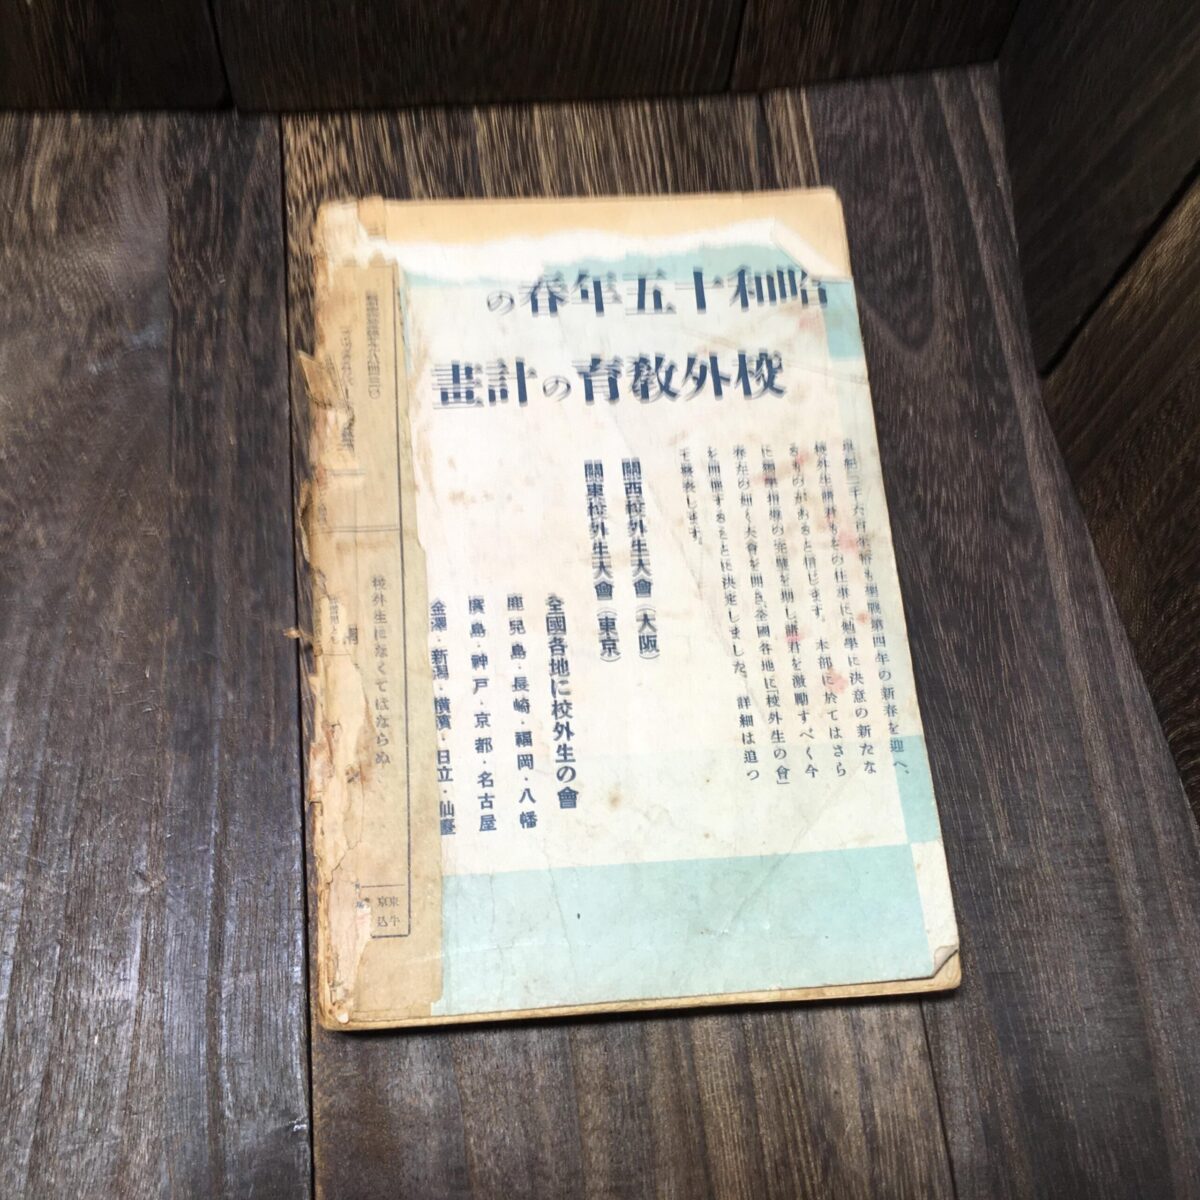 昭和十五年春の
校外教育の計畫
皇紀二千六百年輝も聖戰第四年の新春を迎へ、
校外生諸君もその仕事に勉學に決意の新たな
るものがあると信じます。本部に於てはさら
に勉學指導の完璧を期し、諸君を激勵すべく今
春左の如く大會を開き、全國各地に「校外生の會」
を開催することに決定しました。詳細は追つ
て發表します。
關西校外生大會（大阪）
關東校外生大會（東京）
全國各地に校外生の會
鹿兒島・長崎・福岡・八幡
廣島・神戸・京都・名古屋
金澤・新潟・横濱・日立・仙臺
校外生になくてはならぬ
東京
牛込